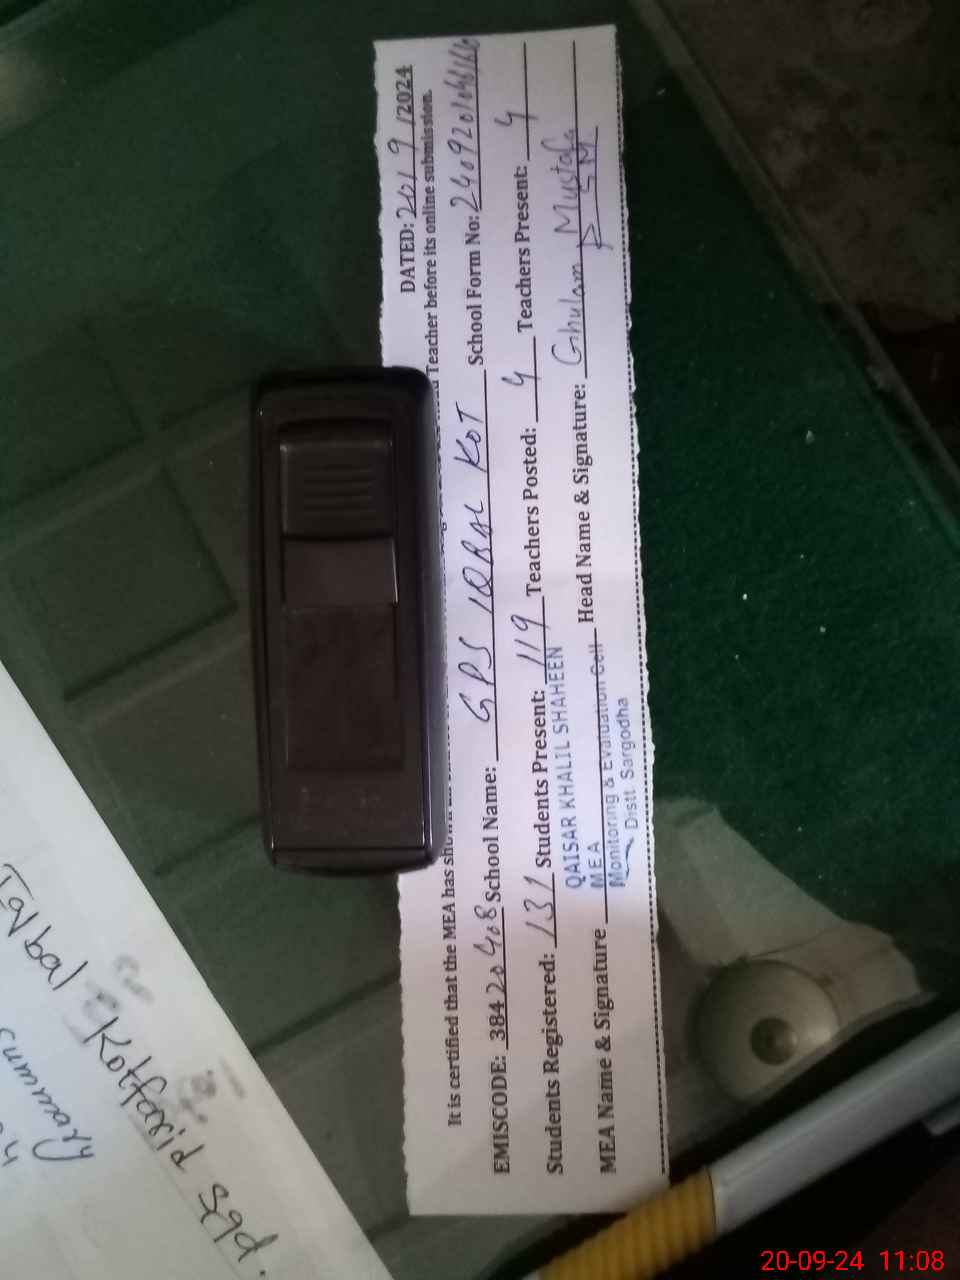 DATED: 20/9/2024
It is certified that the MEA has shown Teacher before its online submission.
EMISCODE: 38420408 School Name: GPS IQBAL KOT School Form No:
Students Registered: 131 Students Present: 119 Teachers Posted: 4 Teachers Present: 4
QAISAR KHALIL SHAHEEN
MEA
MEA Name & Signature Head Name & Signature: Ghulam Mustafa
Monitoring & Evaluation Cell
Distt. Sargodha
Iqbal Kotfarid
20-09-24 11:08